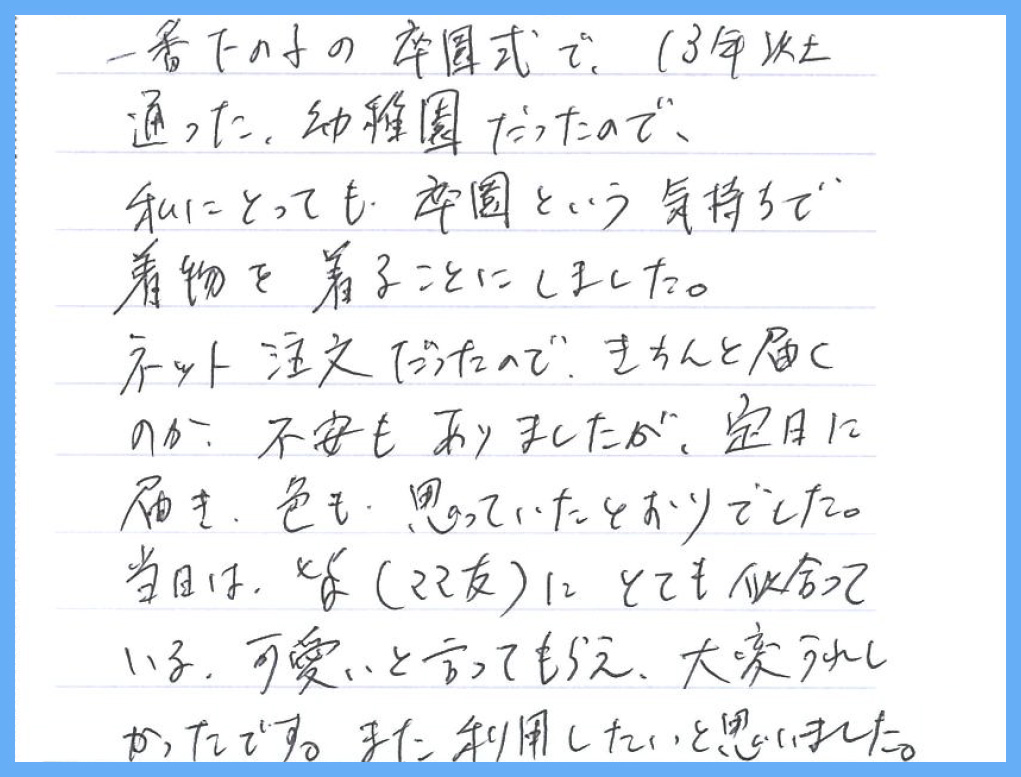 一番下の子の卒園式で、13年以上
通った、幼稚園だったので、
私にとっても、卒園という気持ちで
着物を着ることにしました。
ネット注文だったので、きちんと届く
のか、不安もありましたが、定日に
届き、色も、思っていたとおりでした。
当日は、皆（ママ友）にとても似合って
いる、可愛いと言ってもらえ、大変うれし
かったです。また利用したいと思いました。